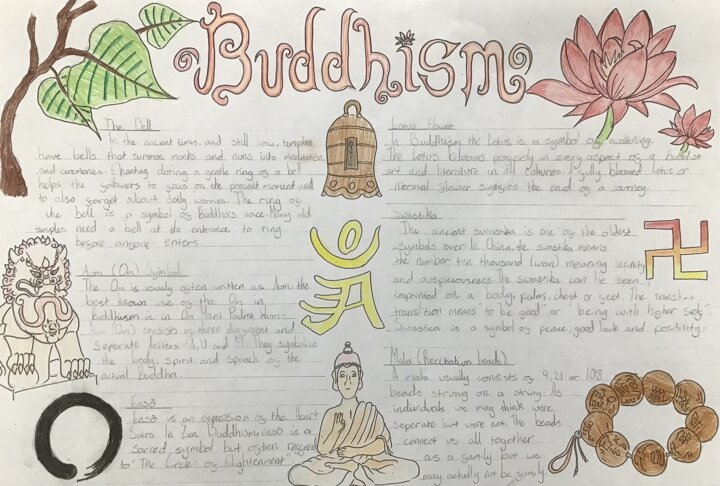 Buddhism
The Bell
In the ancient times, and still now, temples
have bells that summon monks and nuns into meditation
and ceremonies. Chanting during a gentle ring of a bell
helps the followers to focus on the present moment and
to also forget about daily worries. The ring of
the bell is a symbol of buddha's voice. Many old
temples need a bell at the entrance to ring
before anyone enters.
Aum (Om) Symbol
The Om is usually often written as Aum. the
best known use of the Om in
buddhism is in Om Mani Padme Hum.
Aum (Om) consists of three different and
seperate letters. A, U and M. They symbolize
the body, spirit and speach of the
actual Buddha.
Ensō
Ensō is an expression of the Heart
Sutra. In Zen Buddhism, enso is a
Sacred symbol but often regarded
to "The Circle of Enlightenment"
Lotus Flower
In Buddhism the Lotus is a symbol of awakening.
The Lotus blooms in every aspect of a buddist
art and literature in all cultures. A fully bloomed lotus or
normal flower signifies the end of a journey.
Swastika
The ancient swastika is one of the oldest
symbols ever. In China, the means
the number ten thousand (wan) meaning infinity
and auspiciousness. The swastika can be seen
imprinted on a body, palms, chest or feet. The sanskrit
transition means to be good, or "being with higher self"
Swastica is a symbol of peace, good luck and positivity.
Mala (Recitation beads)
A mala usually consists of 9, 21 or 108
beads strung on a string. As
individuals we may think were
seperate but were not. The beads
connect us all together
as a family but we
may actully not be family